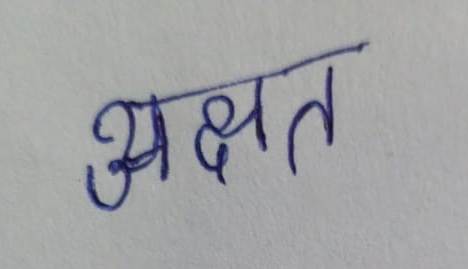 अक्षत